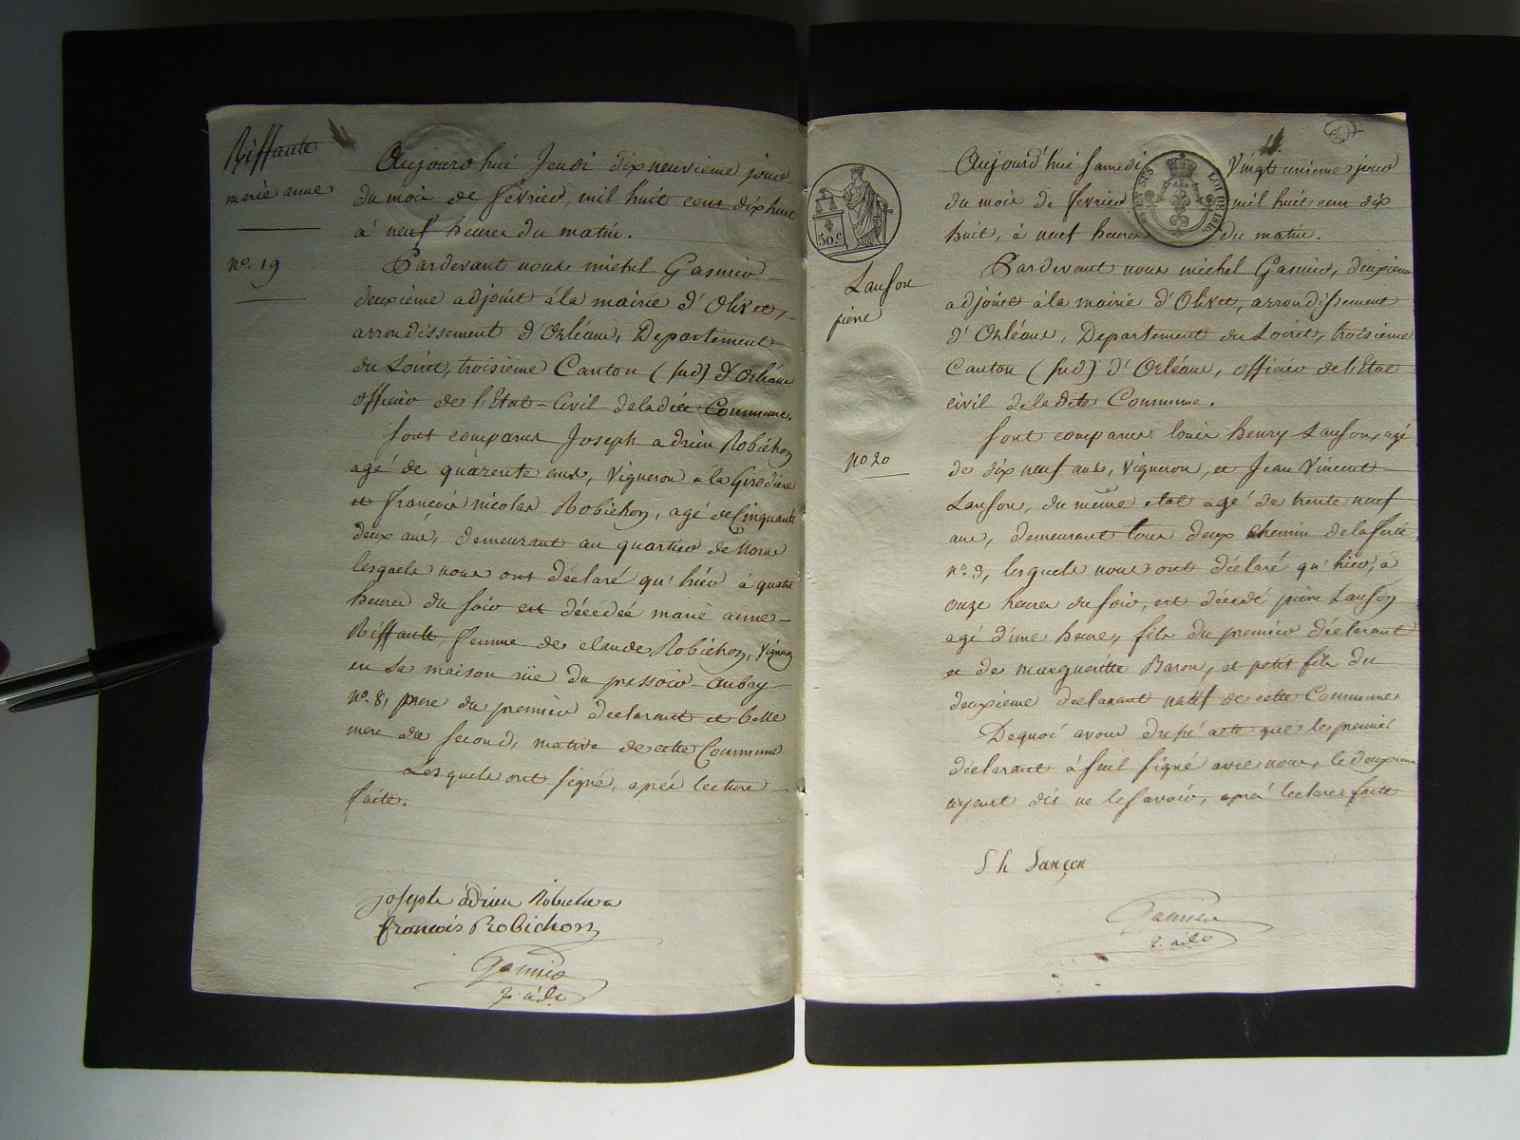 Riffault
marie anne
nº. 19
Aujourd'hui Jeudi dix neuvieme jour
du mois de fevrier, mil huit cent dix huit
à neuf heures du matin.
Pardevant nous michel Gasnier
deuxième adjoint à la mairie d'Olivet,
arrondissement d'Orléans, Departement
du Loiret, troisième Canton (sud) d'Orléans
officier de l'Etat-Civil de la dite Commune.
Sont comparus Joseph adrien Robichon
agé de quarente ans, Vigneron à la Girodière
et françois nicolas Robichon, agé de Cinquante
deux ans, demeurant au quartier de
lesquels nous ont déclaré qu'hier à quatre
heures du soir est décédée marie anne
Riffault, femme de claude Robichon, Vigneron
en sa maison rue du pressoir-aubry
nº. 8, mere du premier declarant et belle
mere du second, native de cette Commune
Lesquels ont signé, après lecture
faite.
joseph adrien Robichon
francois Robichon
Gasnier
2. adt.
50 c
Lanson
pierre
nº 20
Aujourd'hui Samedi Vingt unieme jour
du mois de fevrier mil huit cent dix
huit, à neuf heures du matin.
Pardevant nous michel Gasnier, deuxieme
adjoint à la mairie d'Olivet, arrondissement
d'Orléans, Departement du Loiret, troisième
Canton (sud) d'Orléans, officier de l'Etat
civil de la dite Commune.
Sont comparus louis henry Lanson, agé
de dix neuf ans, Vigneron, et Jean Vincent
Lanson, du même etat agé de trente neuf
ans, demeurant tous deux chemin de la ferté
nº. 3, lesquels nous ont déclaré qu'hier, à
onze heures du soir, est décédé pierre Lanson
agé d'une heure, fils du premier déclarant
et de marguerite Baron, et petit fils du
deuxieme declarant natif de cette Commune
De quoi avons dressé acte que le premier
déclarant à seul signé avec nous, le deuxieme
ayant dit ne le savoir, après lecture faite
L h Lançon
Gasnier
2. adt.